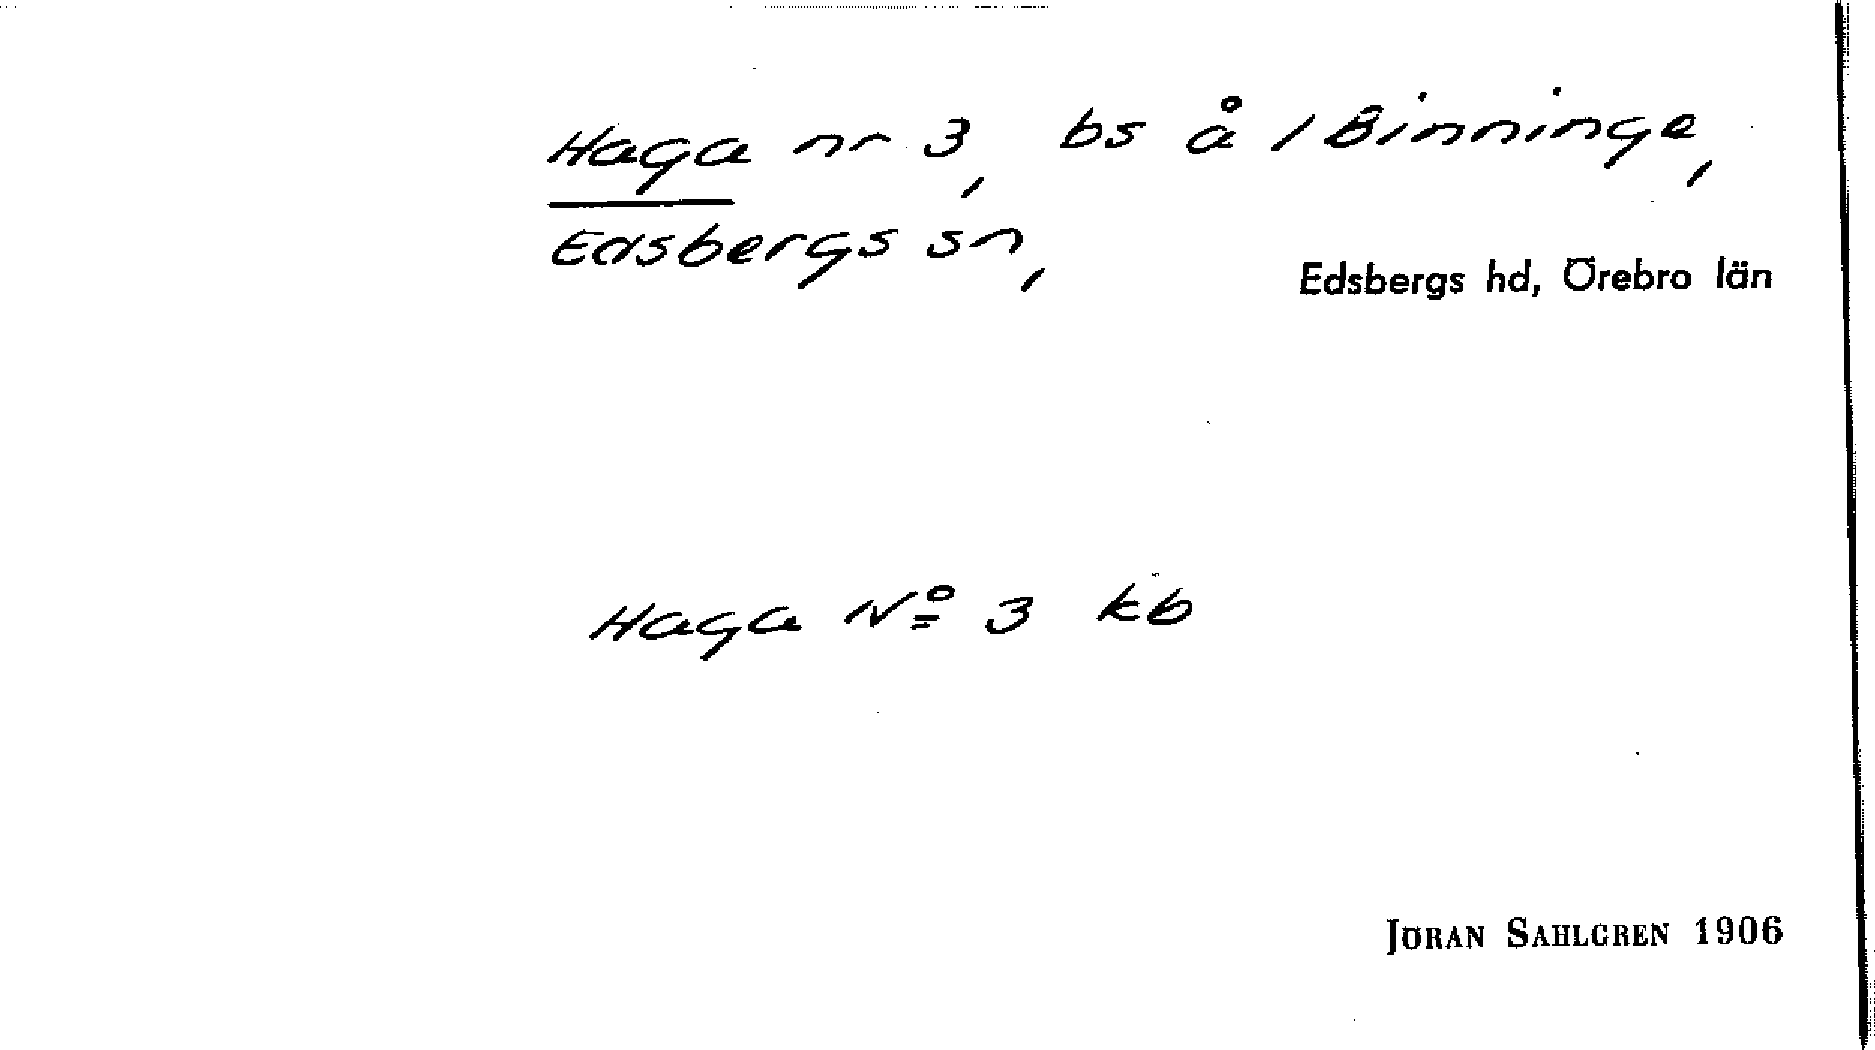 Haga nr 3, bs å 1 Binninge,
Edsbergs sn,
Edsbergs hd, Örebro län
Haga No 3 kb
JÖRAN SAHLGREN 1906